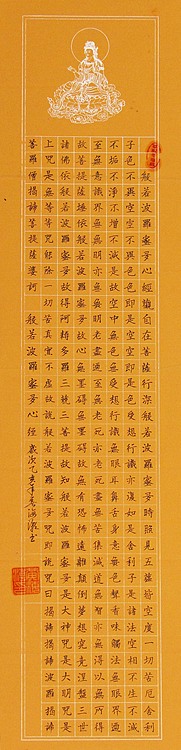 般若波羅蜜多心經觀自在菩薩行深般若波羅蜜多時照見五蘊皆空度一切苦厄舍利
子色不異空空不異色色即是空空即是色受想行識亦復如是舍利子是諸法空相不生不滅
不垢不淨不增不減是故空中無色無受想行識無眼耳鼻舌身意無色聲香味觸法無眼界乃
至無意識界無無明亦無無明盡乃至無老死亦無老死盡無苦集滅道無智亦無得以無所得
故菩提薩埵依般若波羅蜜多故心無罣礙無罣礙故無有恐怖遠離顛倒夢想究竟涅槃三世
諸佛依般若波羅蜜多故得阿耨多羅三藐三菩提故知般若波羅蜜多是大神咒是大明咒是無
上咒是無等等咒能除一切苦真實不虛故說般若波羅蜜多咒即說咒曰揭諦揭諦波羅揭諦
波羅僧揭諦菩提薩婆訶 般若波羅蜜多心經 歲次乙亥年